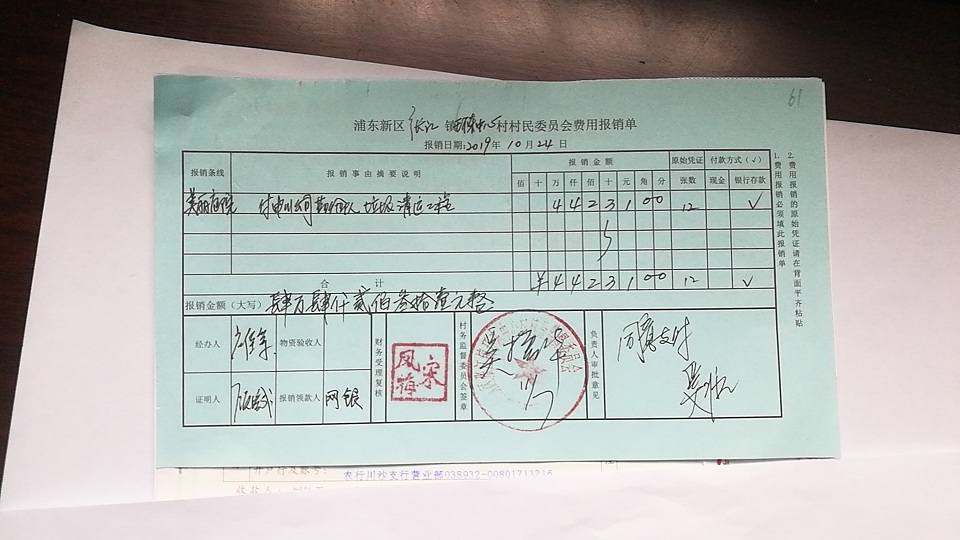 61
浦东新区 镇 村村民委员会费用报销单
报销日期:2019年 10月 24日
报销条线 报销事由摘要说明 报销金额 原始凭证 付款方式(√)
佰 十 万 仟 佰 十 元 角 分 张数 现金 银行存款
美丽庭院 垃圾清运工程 4 4 2 3 1 0 0 12 √
合计 ¥ 4 4 2 3 1 0 0 12 √
报销金额(大写) 肆万肆仟贰佰叁拾壹元整
经办人 物资验收人
证明人 报销领款人 网银
财务受理复核
凤宋梅
村务监督委员会签章
负责人审批意见
同意支付
1.费用报销必须填此报销单
2.费用报销的原始凭证请在背面平齐粘贴
开户行及账号: 农行川沙支行营业部038932-00801713216
收款人